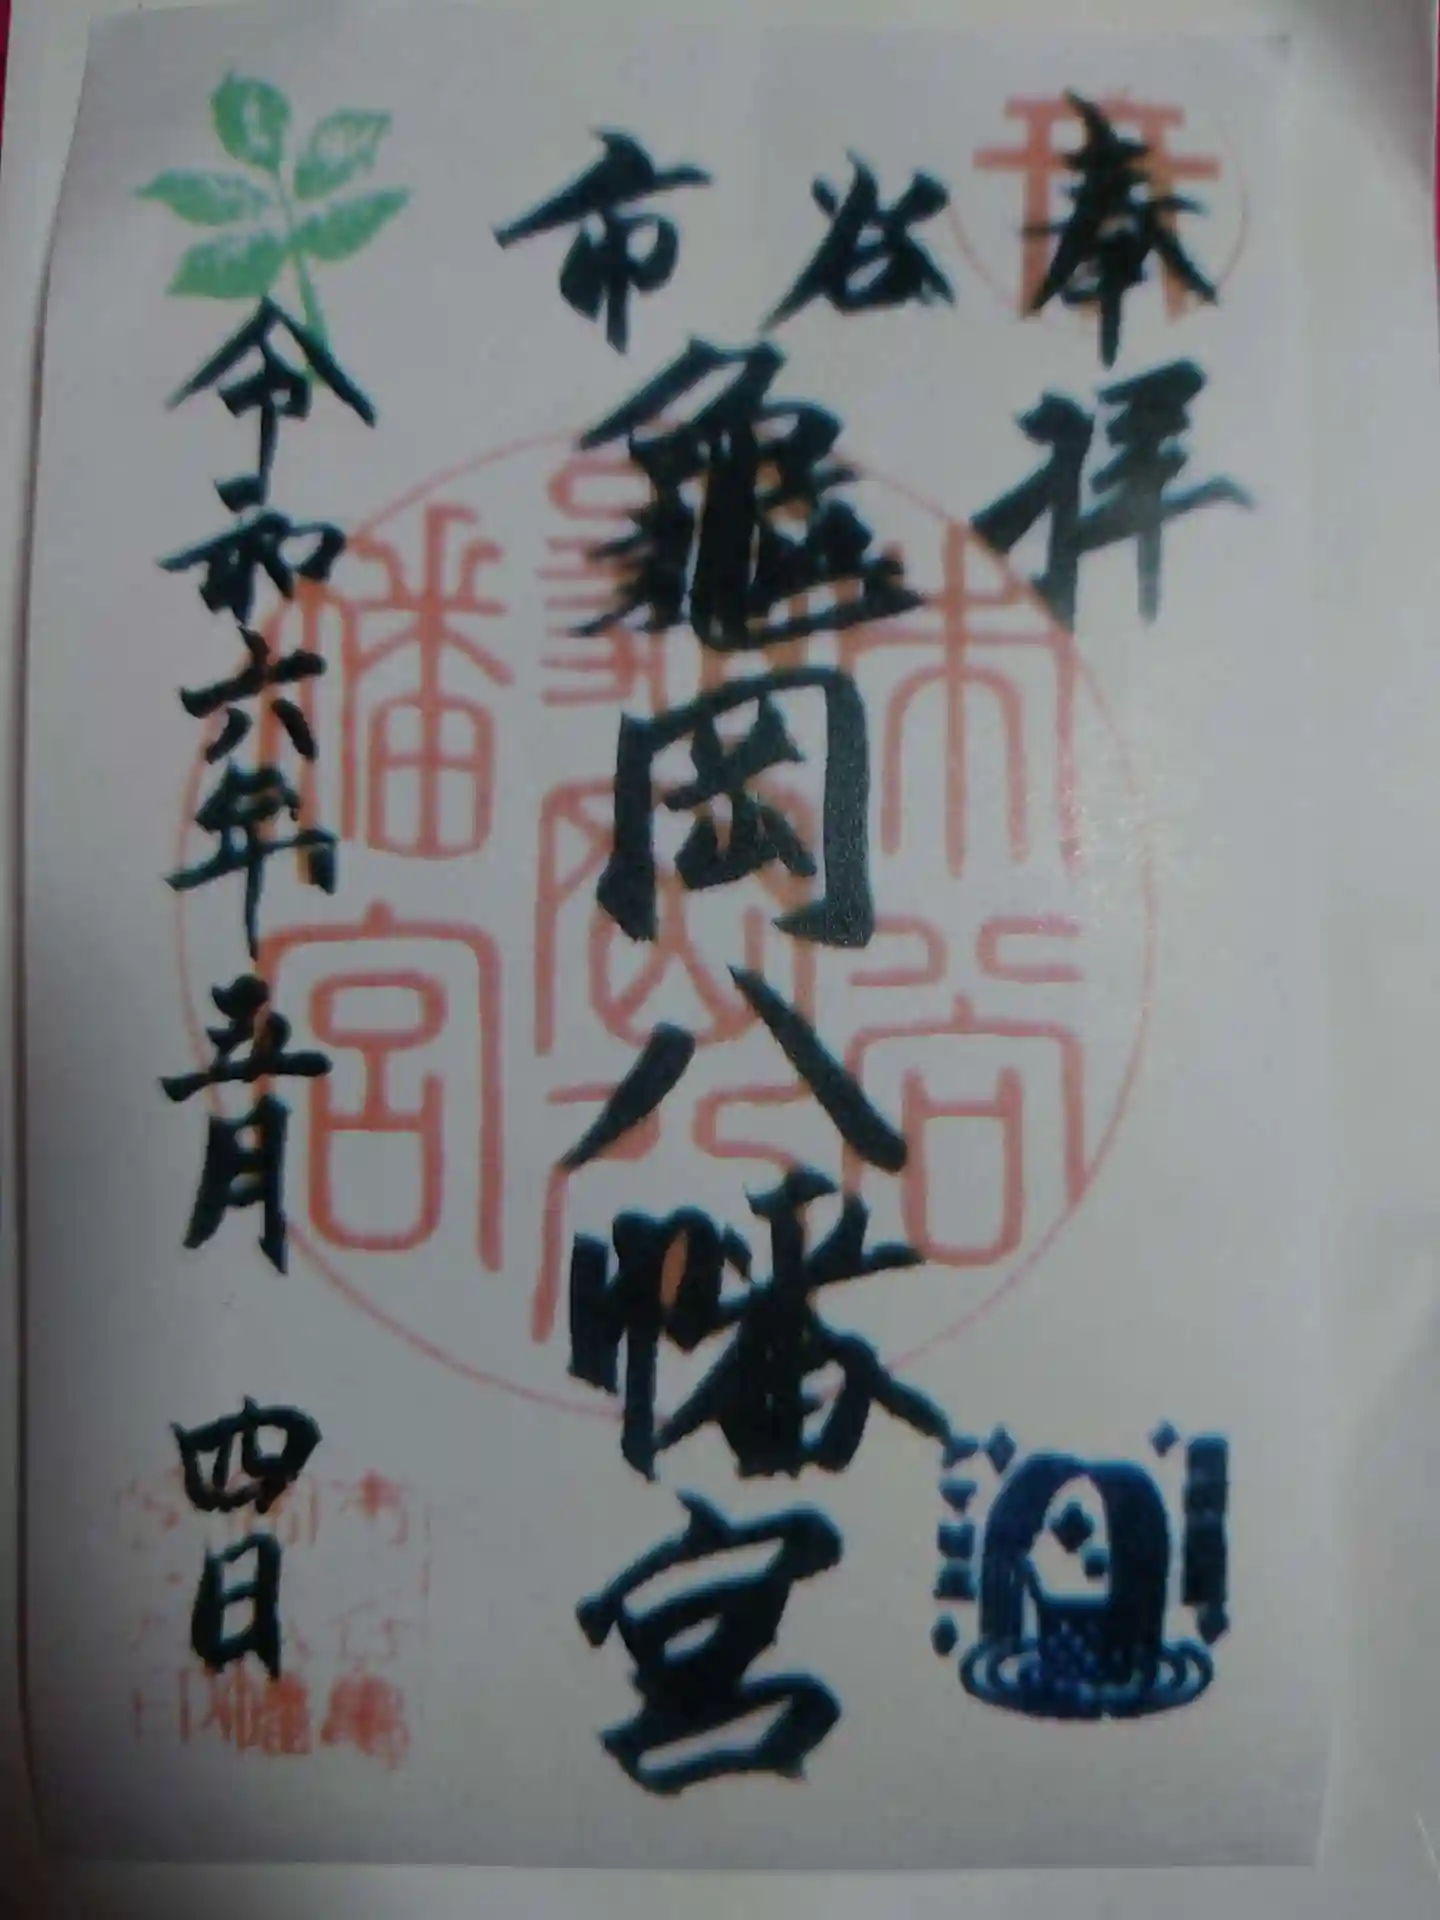 奉拝
市谷
亀岡八幡宮
令和六年五月四日
市谷
亀岡八
幡宮